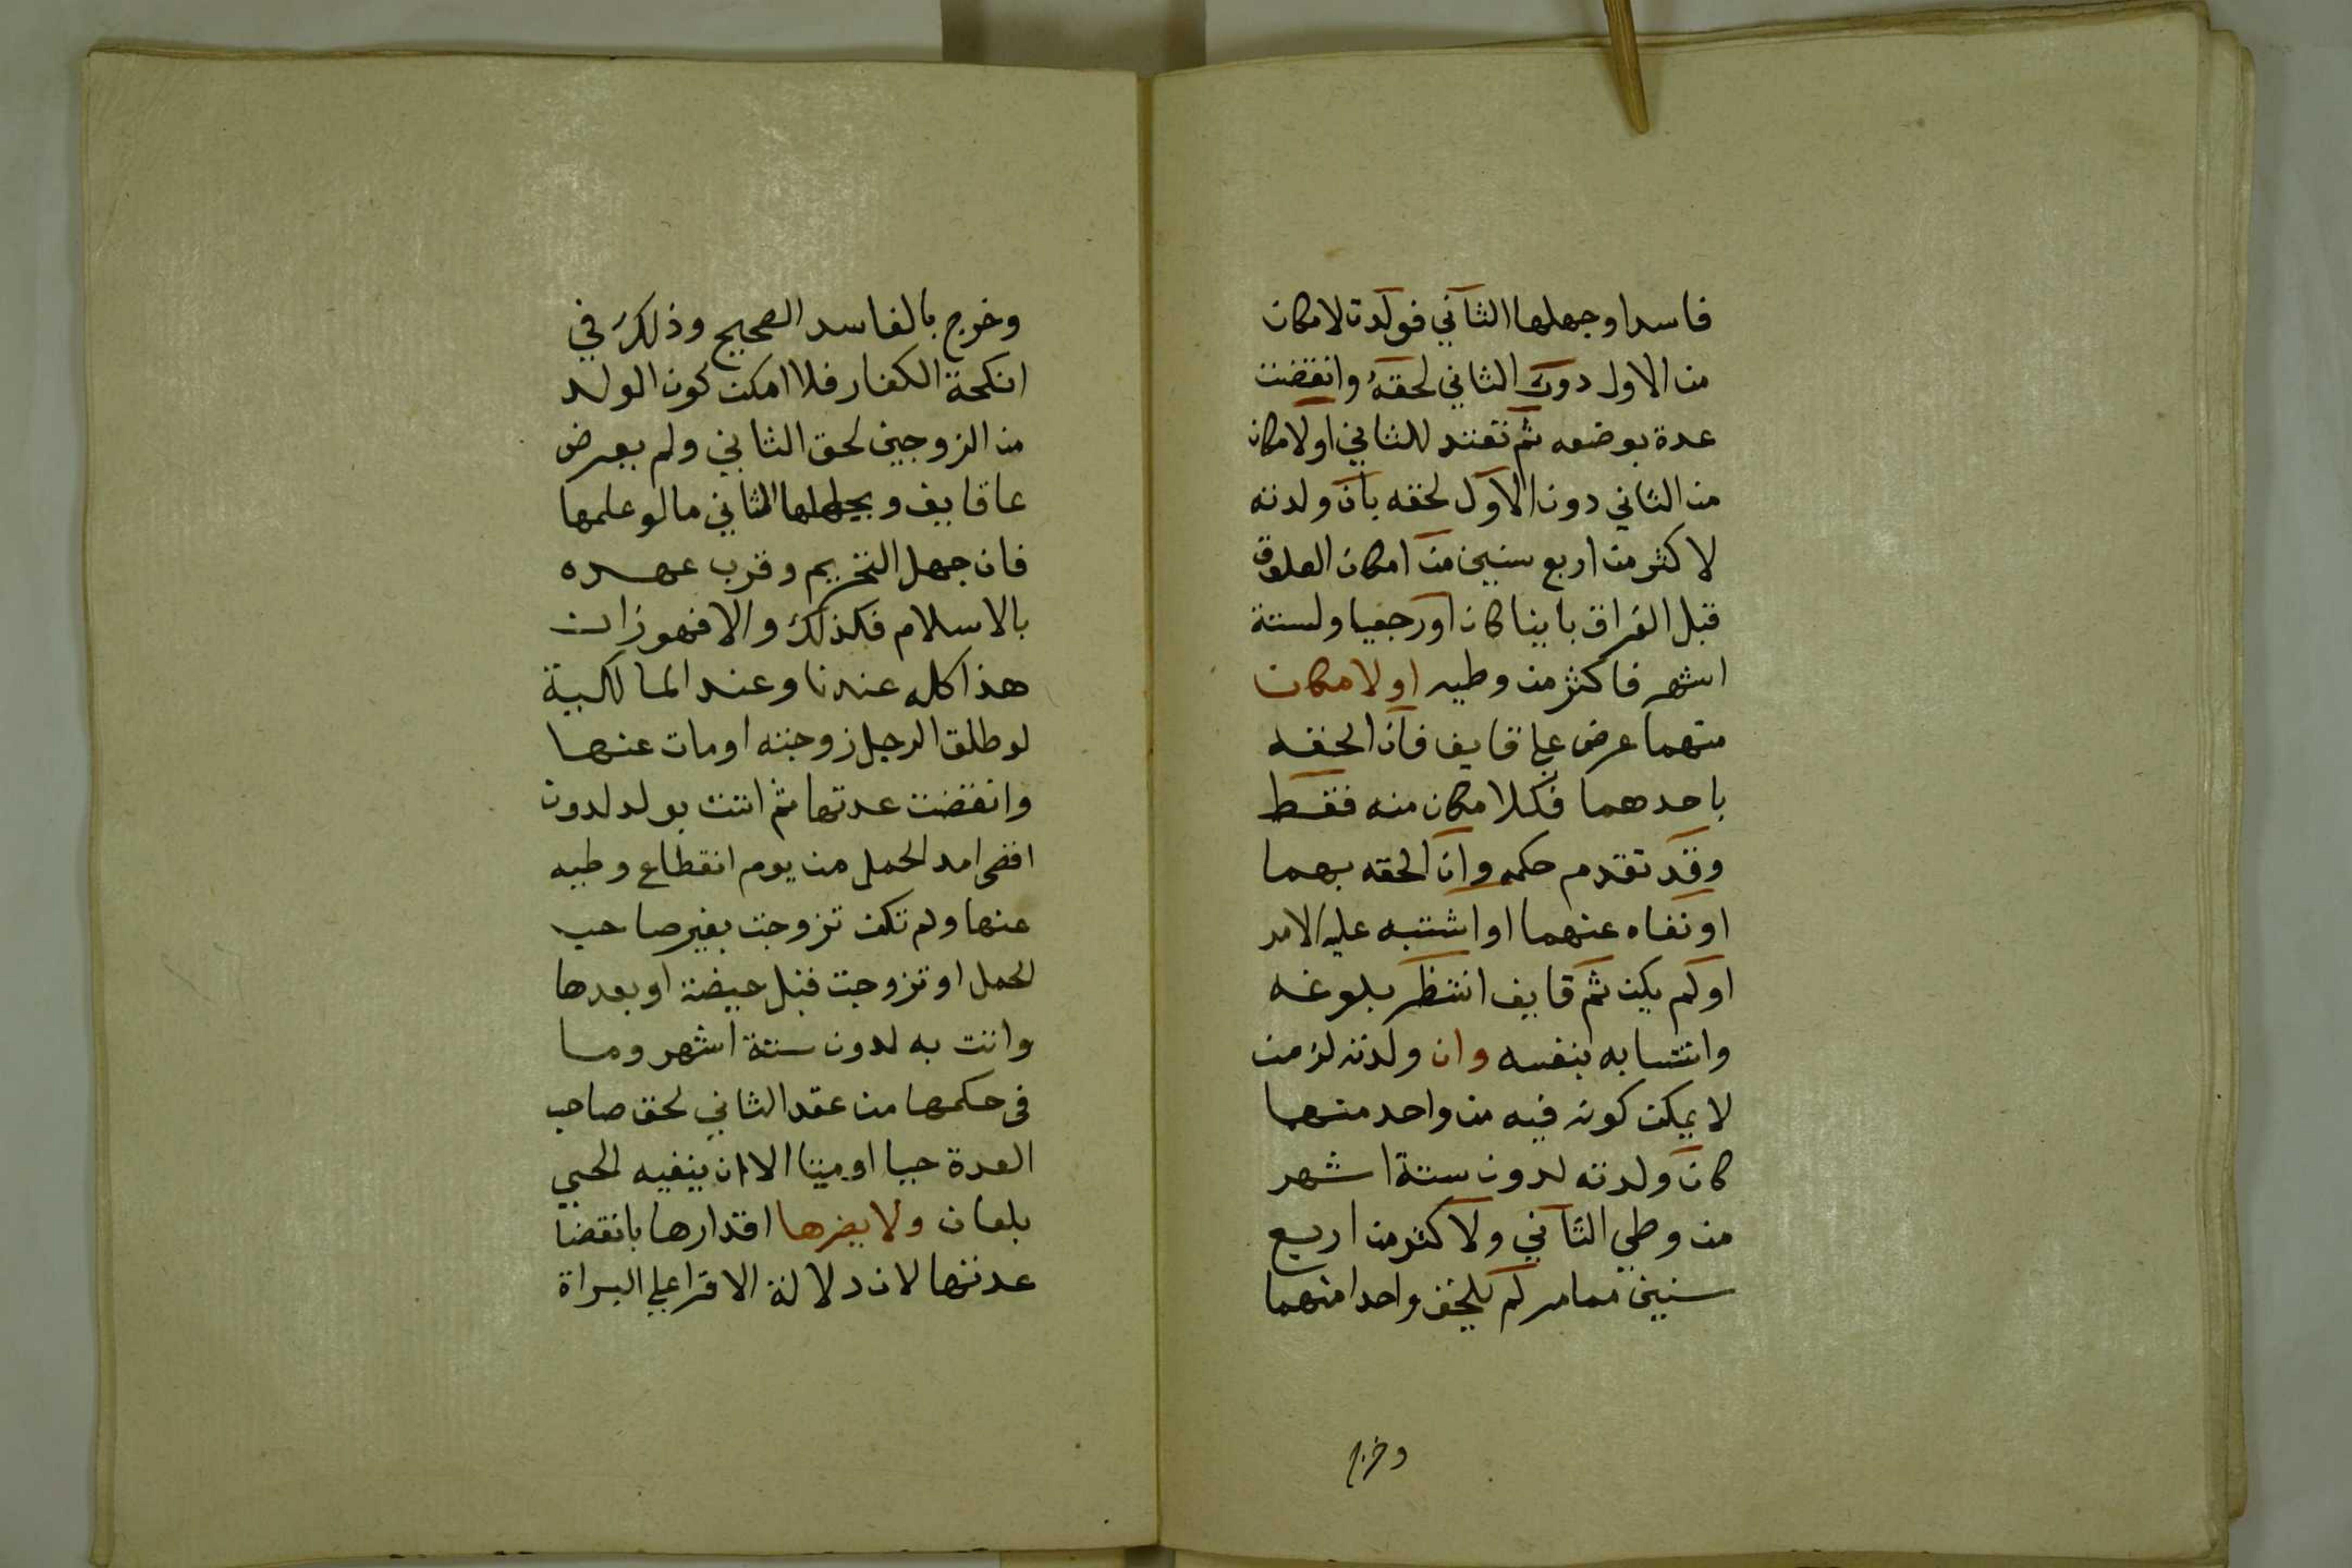 فاسدا وجهلها الثاني فولدت لامكان
من الاول دون الثاني لحقه وانقضت
عدة بوضعه ثم تعتد للثاني اولامكان
من الثاني دون الاول لحقه بان ولدته
لاكثر من اربع سنين من امكان العلوق
قبل الفراق باينا كان اورجعيا ولستة
اشهر فاكثر من وطيه اولامكان
منهما عرض علي قايف فان الحقه
باحدهما فكلامكان منه فقط
وقد تقدم حكمه وان الحقه بهما
اونفاه عنهما او اشتبه عليه الامر
اولم يكن ثم قايف انتظر بلوغه
وانتسابه بنفسه وان ولدته لزمن
لا يمكن كونه فيه من واحد منهما
كان ولدته لدون ستة اشهر
من وطي الثاني ولاكثر من اربع
سنين ممامر لم يلحق واحدا منهما
وخرج
وخرج بالفاسد الصحيح وذلك في
انكحة الكفار فلا امكن كون الولد
من الزوجين لحق الثاني ولم يعرض
عاقايف وبجهلها الثاني مالو علمها
فان جهل التحريم وقرب عهده
بالاسلام فكذلك والافهوزان
هذا كله عندنا وعند المالكية
لو طلق الرجل زوجته اومات عنها
وانقضت عدتها ثم اتت بولد لدون
اقصى امد الحمل من يوم انقطاع وطيه
عنها ولم تكن تزوجت بغير صاحب
الحمل او تزوجت قبل حيضة اوبعدها
واتت به لدون ستة اشهر وما
فى حكمها من عقد الثاني لحق صاحب
العدة حيا اوميتا الا ان ينفيه الحي
بلعان ولا يضرها اقرارها بانقضا
عدتها لان دلالة الاقرا علي البراة